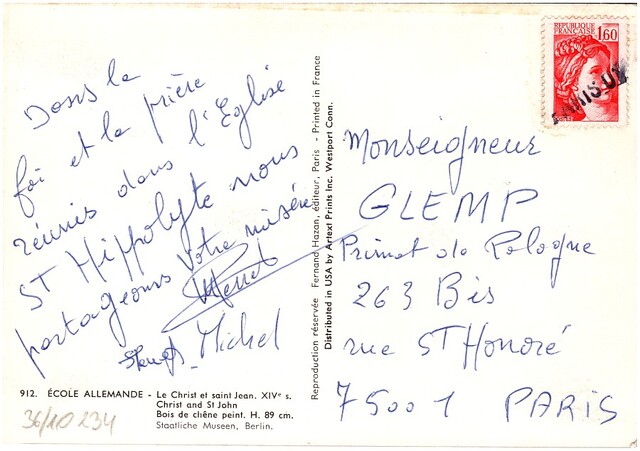 Dans la
foi et la prière
réunis dans l'Eglise
ST Hippolyte nous
partageons votre misère
Michel
912. ÉCOLE ALLEMANDE - Le Christ et saint Jean. XIVe s.
Christ and St John
Bois de chêne peint. H. 89 cm.
Staatliche Museen, Berlin.
36/10 234
Reproduction réservée Fernand Hazan, éditeur, Paris - Printed in France
Distributed in USA by Artext Prints Inc. Westport Conn.
REPUBLIQUE
FRANÇAISE 1,60
Monseigneur
GLEMP
Primat de Pologne
263 Bis
rue ST Honoré
75001 PARIS